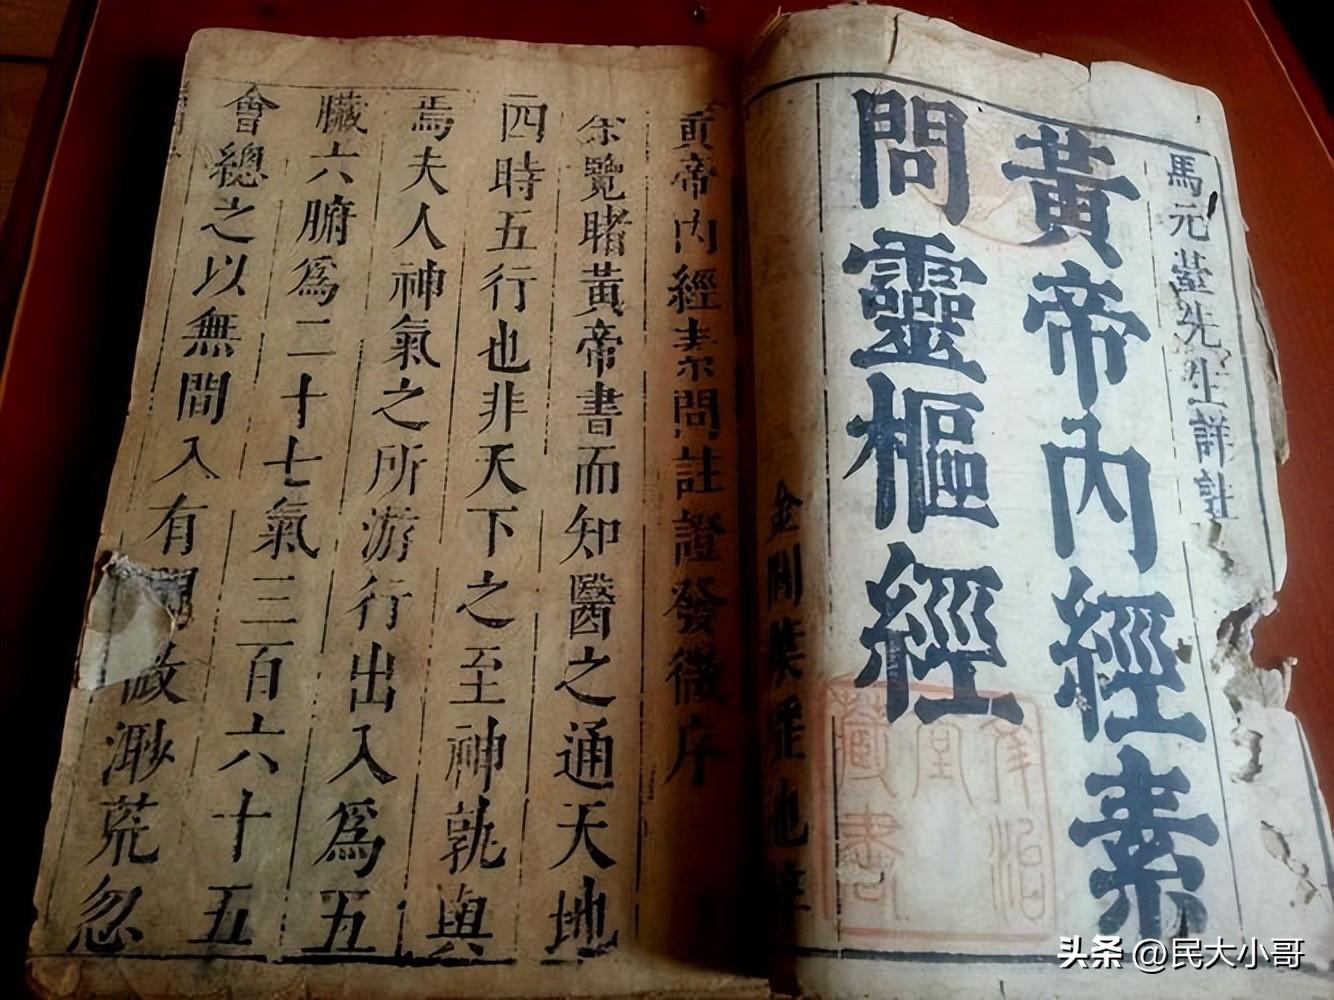 馬元臺先生詳註
黃帝內經素
問靈樞經
金閶葉
堂
藏書
黃帝內經素問註證發微序
余覽睹黃帝書而知醫之通天地
四時五行也非天下之至神孰與
焉夫人神氣之所游行出入爲五
臟六腑爲二十七氣三百六十五
會總之以無間入有間微渺荒忽
头条 @民大小哥